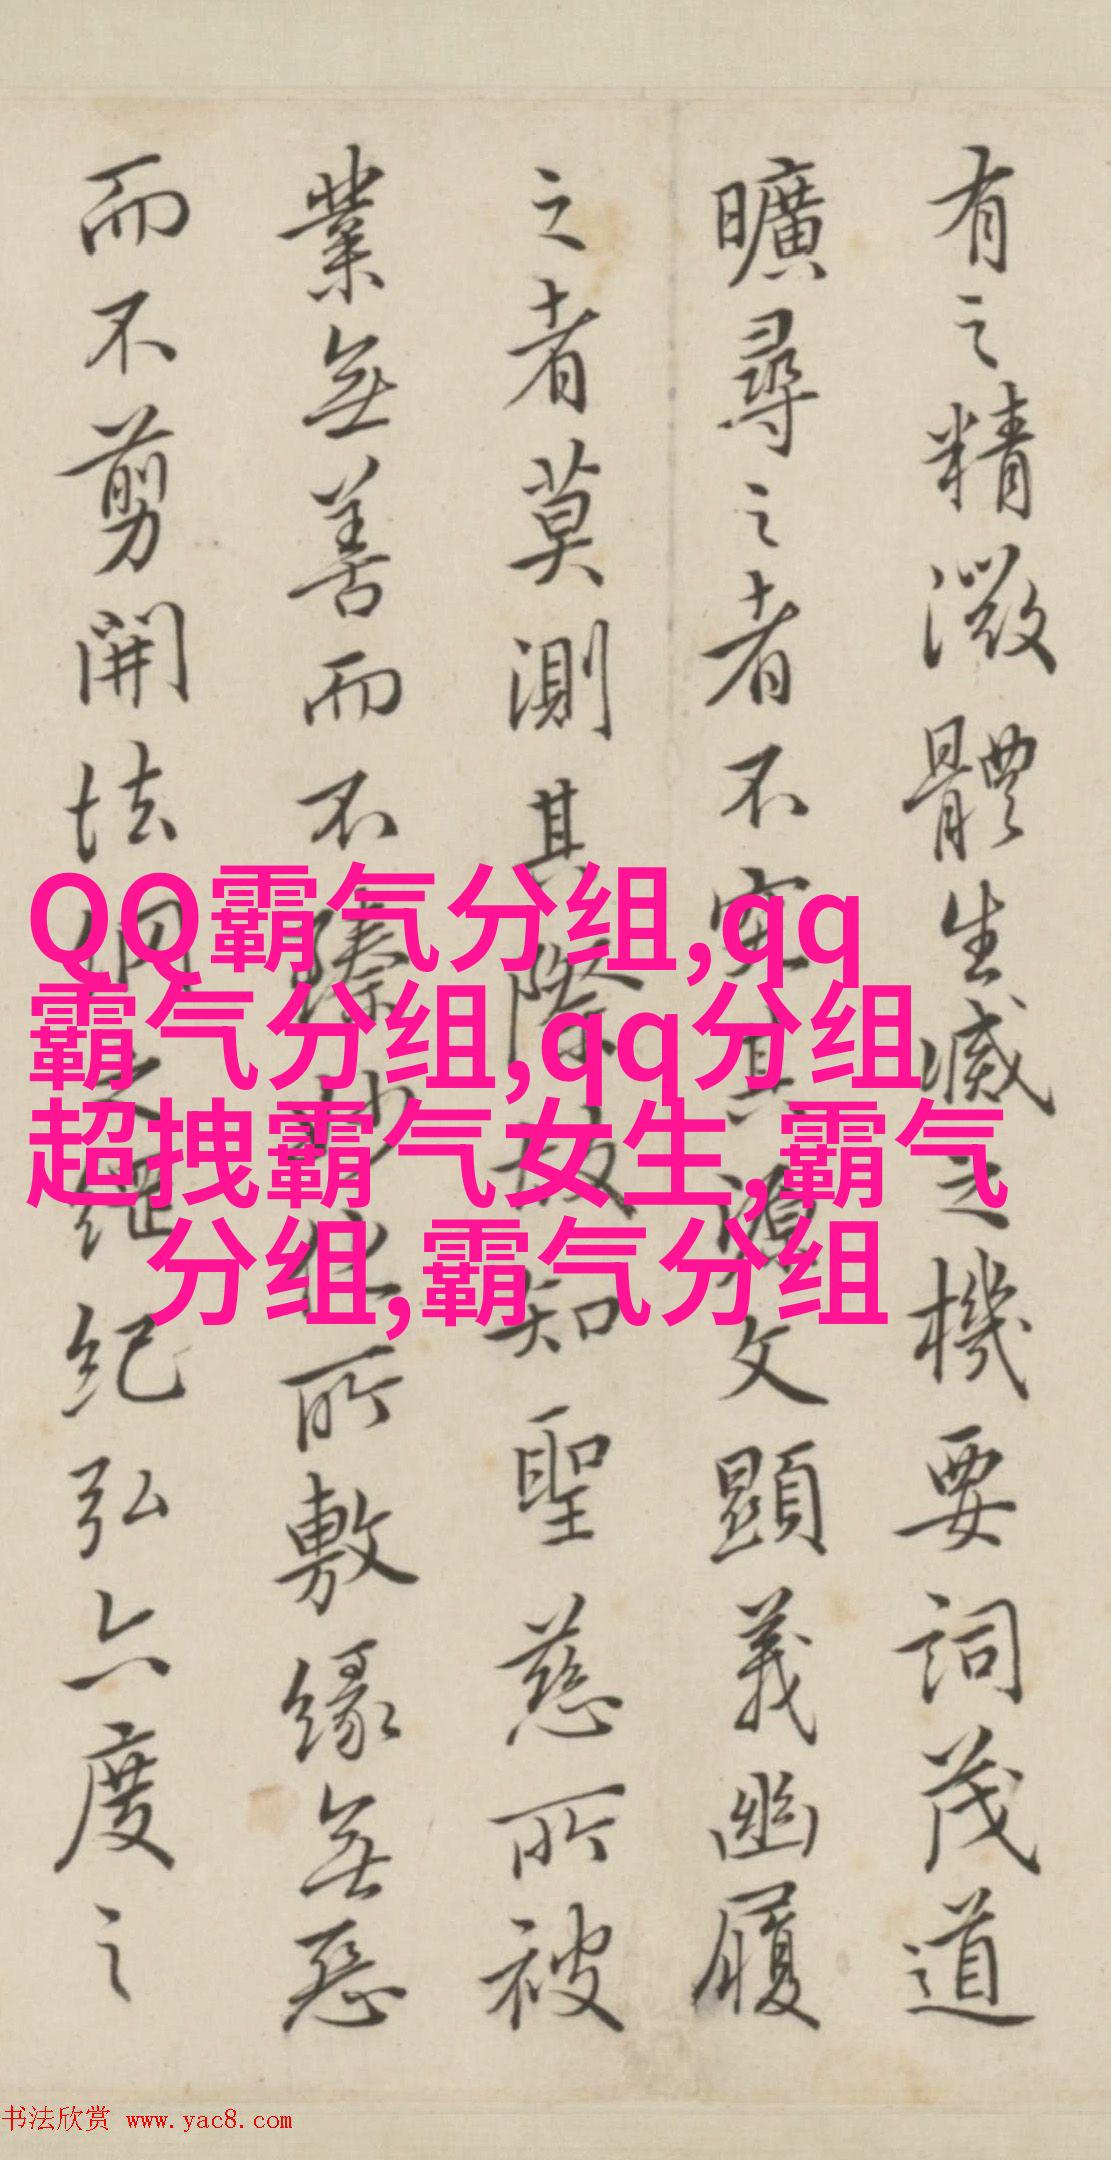 有之精微體生滅之機要詞茂道
曠尋之者不究其源文顯義幽履
之者莫測其際故知聖慈所被
業無善而不臻妙化所敷緣無惡
而不剪開法網之紀弘六度之
QQ霸气分组,qq
霸气分组,qq分组
超拽霸气女生,霸气
分组,霸气分组
书法欣赏 www.yac8.com